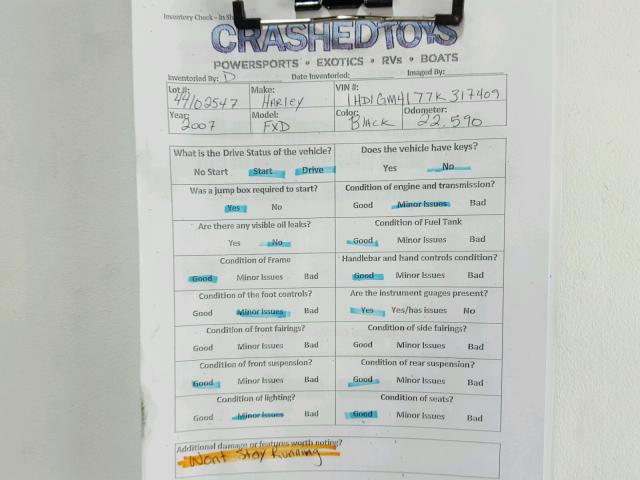 Inventory Check – In Sh
CRASHEDTOYS
POWERSPORTS • EXOTICS • RVs • BOATS
Inventoried By: D Date Inventoried: Imaged By:
Lot #: 44102547 Make: HARLEY VIN #: 1HD1GM4177K317409
Year: 2007 Model: FXD Color: BLACK Odometer: 22,590
What is the Drive Status of the vehicle? Does the vehicle have keys?
No Start Start Drive Yes No
Was a jump box required to start? Condition of engine and transmission?
Yes No Good Minor Issues Bad
Are there any visible oil leaks? Condition of Fuel Tank
Yes No Good Minor Issues Bad
Condition of Frame Handlebar and hand controls condition?
Good Minor Issues Bad Good Minor Issues Bad
Condition of the foot controls? Are the instrument guages present?
Good Minor Issues Bad Yes Yes/has issues No
Condition of front fairings? Condition of side fairings?
Good Minor Issues Bad Good Minor Issues Bad
Condition of front suspension? Condition of rear suspension?
Good Minor Issues Bad Good Minor Issues Bad
Condition of lighting? Condition of seats?
Good Minor Issues Bad Good Minor Issues Bad
Additional damage or features worth noting?
Wont Stay Running